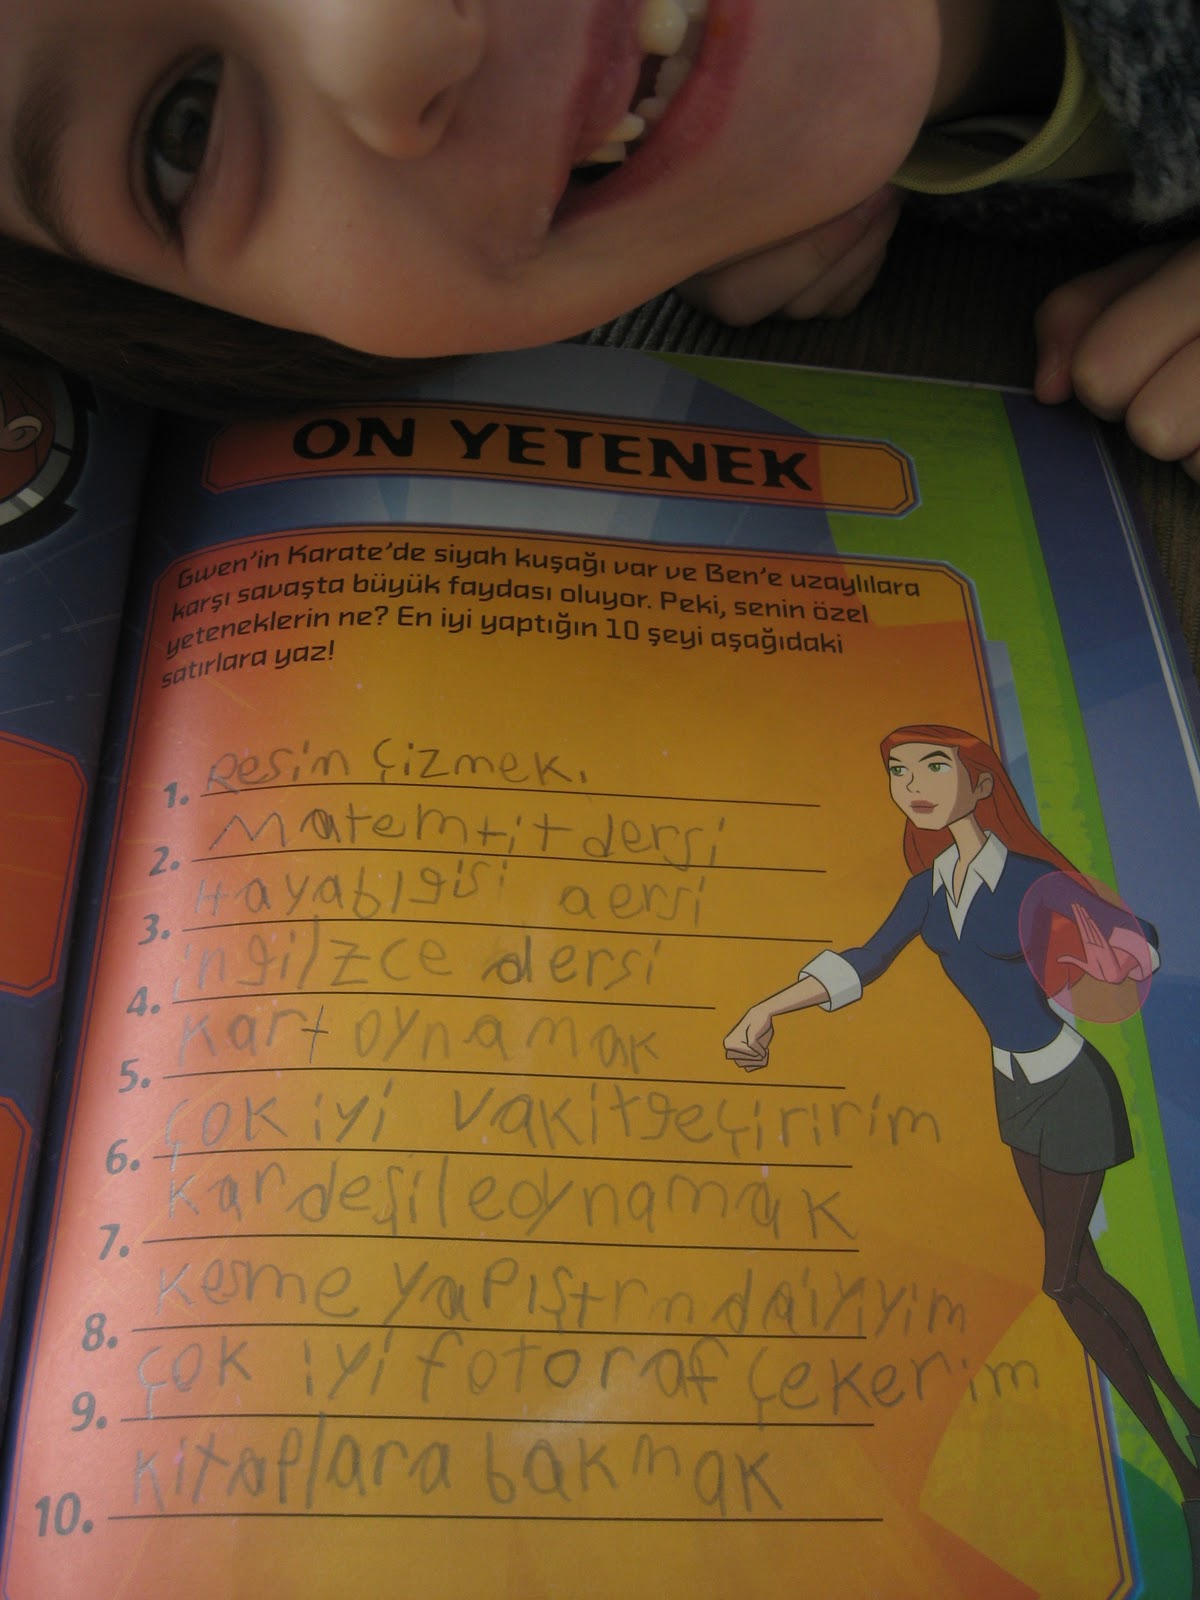 ON YETENEK
Gwen'in Karate'de siyah kuşağı var ve Ben'e uzaylılara
karşı savaşta büyük faydası oluyor. Peki, senin özel
yeteneklerin ne? En iyi yaptığın 10 şeyi aşağıdaki
satırlara yaz!
1. Resin Çizmek.
2. Matemtit dersi
3. Hayablgisi dersi
4. ingilzce dersi
5. Kart oynamak
6. Çok iyi vakitgeçiririm
7. Kardeşileoynamak
8. Kesme yapıştrndaiyiyim
9. Çok iyi fotoraf çekerim
10. Kitaplara bakmak